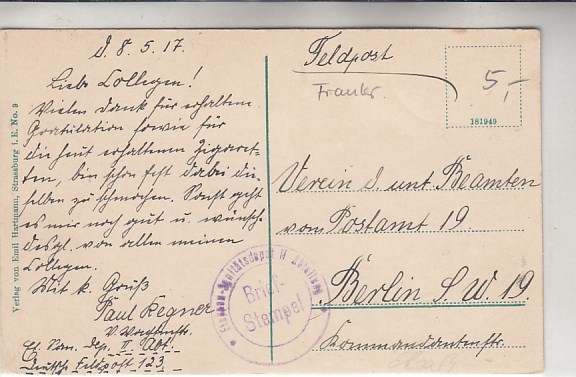 d. 8. 5. 17.
Liebe Collegen!
Vielen Dank für erhaltene
Gratulation sowie für
die heut erhaltenen Zigaret-
ten, bin schon fest dabei die-
selben zu schmochen. Sonst geht
es mir noch gut u. wünsche
desgl. von allen meinen
Collegen.
Mit k. Gruß
Paul Regner
Et. San. Dep. II. Abt.
Deutsche Feldpost 123.
Verlag von Emil Hartmann, Strassburg i. E. No. 9
Feldpost
Frankr.
5,-
181949
Verein d. unt Beamten
vom Postamt 19
Berlin S.W. 19.
Kommandantenstr.
Etappen-Sanitätsdepot II. Abteilung
Brief-
Stempel